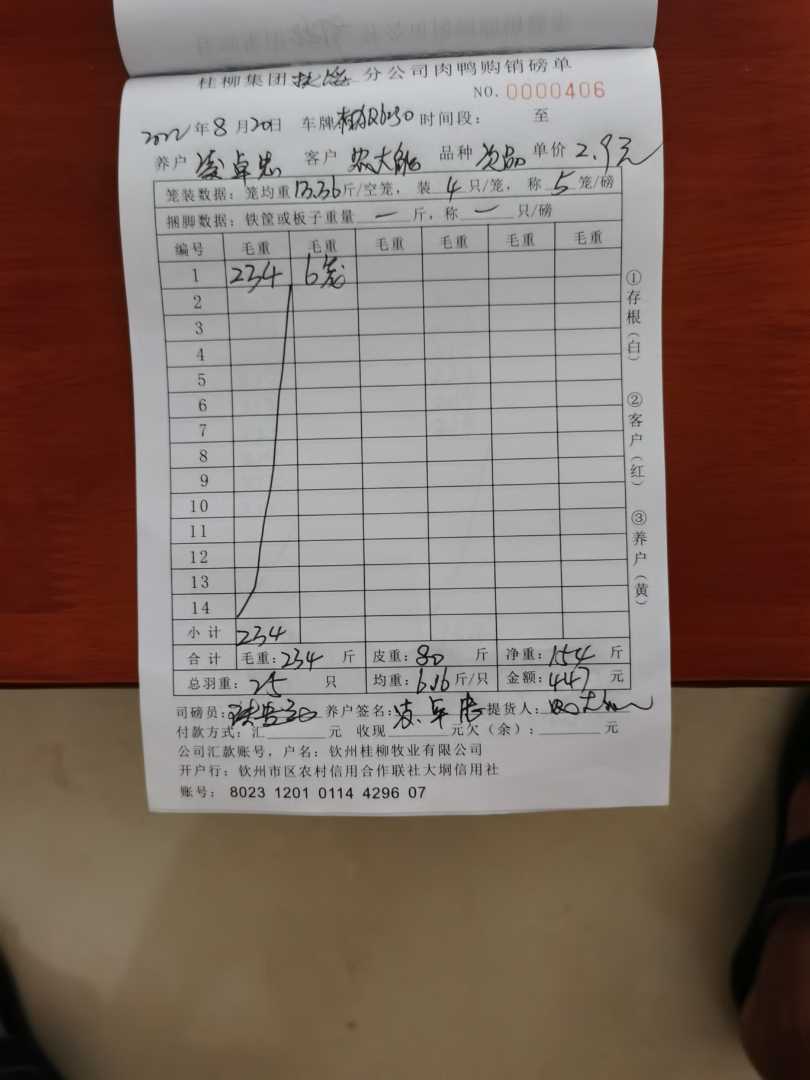 桂柳集团 分公司肉鸭购销磅单
NO. 0000406
2022年8月20日 车牌 时间段: 至
养户 凌卓忠 客户 农大 品种 次品 单价 2.9元
笼装数据: 笼均重13.36斤/空笼, 装 4 只/笼, 称 5 笼/磅
捆脚数据: 铁筐或板子重量 一 斤, 称 一 只/磅
编号 毛重 毛重 毛重 毛重 毛重 毛重
1 234 6笼
2
3
4
5
6
7
8
9
10
11
12
13
14
小计 234
合计 毛重: 234 斤 皮重: 80 斤 净重: 154 斤
总羽重: 25 只 均重: 6.16斤/只 金额: 447 元
司磅员: 养户签名: 凌卓忠 提货人:
付款方式: 汇 元 收现 元欠(余): 元
公司汇款账号, 户名: 钦州桂柳牧业有限公司
开户行: 钦州市区农村信用合作联社大垌信用社
账号: 8023 1201 0114 4296 07
①存根(白)
②客户(红)
③养户(黄)